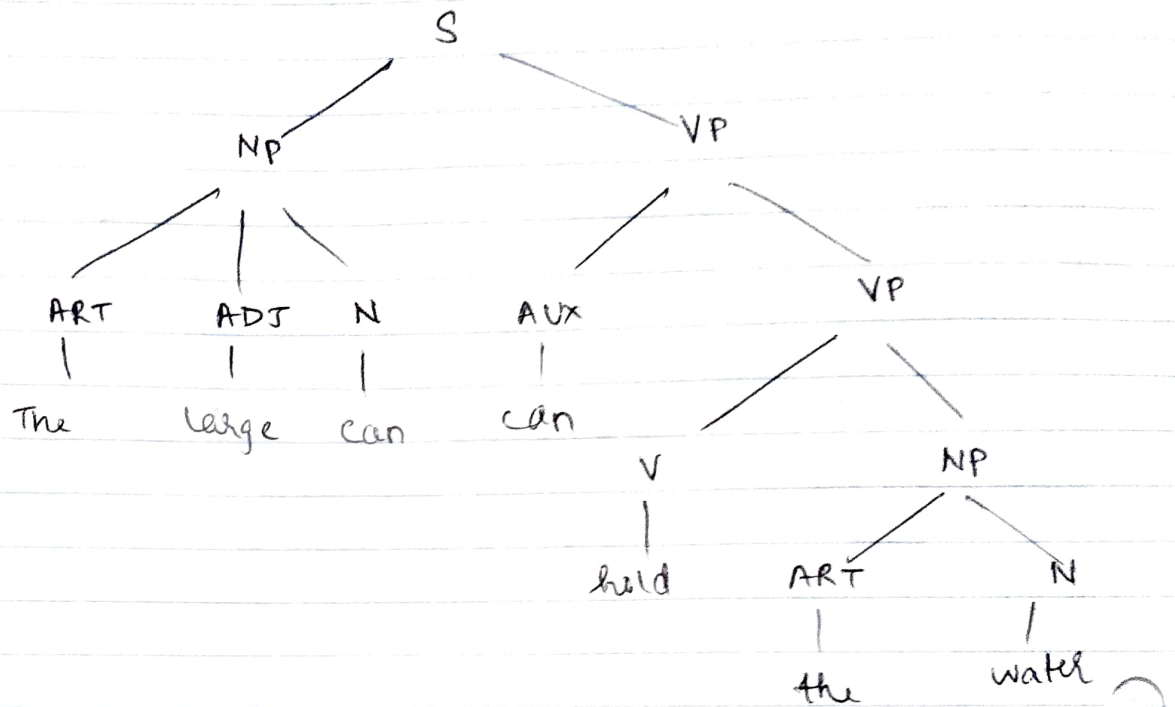 S
NP VP
ART ADJ N AUX VP
The large can can
V NP
hold ART N
the water